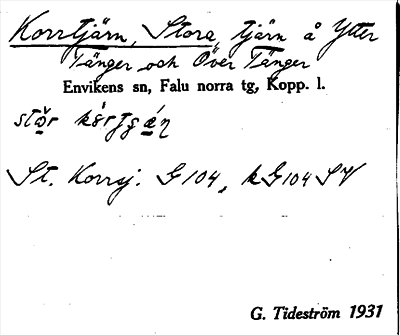 Korrtjärn, Stora, tjärn å Ytter
Tänger och Över Tänger
Envikens sn, Falu norra tg, Kopp. l.
St. Korrsj. G 104, kG104 SV
G. Tideström 1931